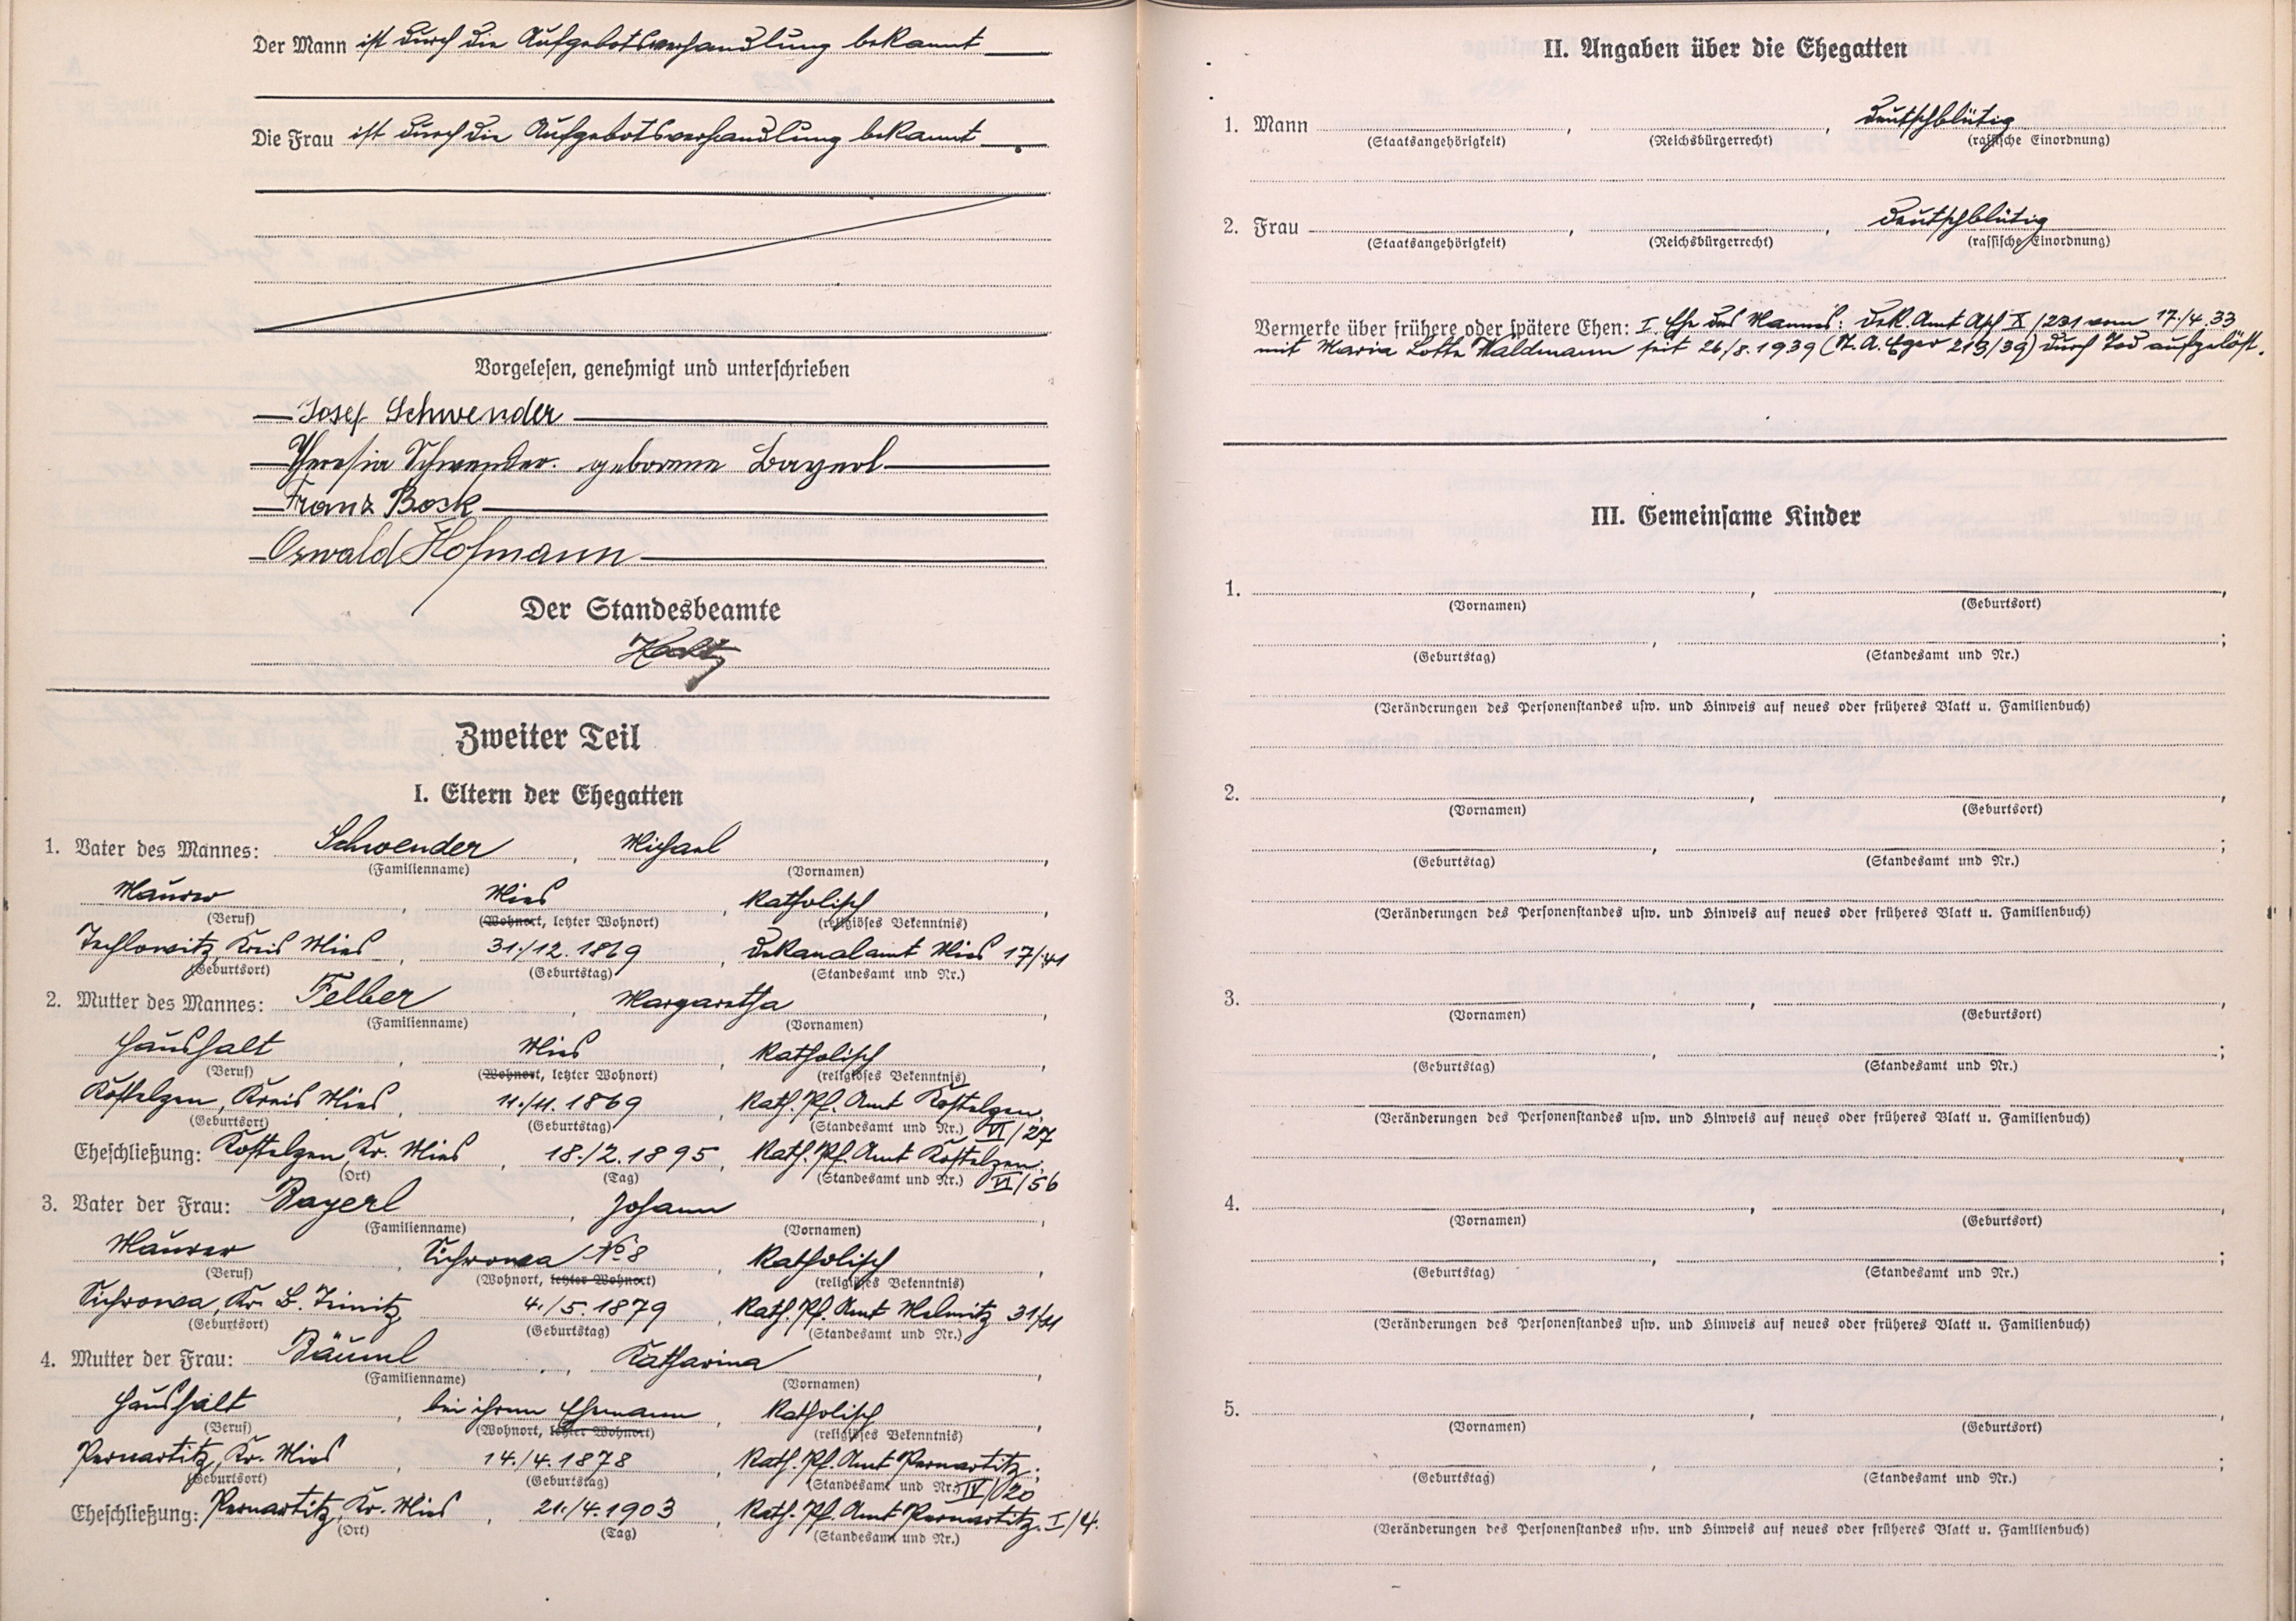 Der Mann ist durch die Aufgebotsverhandlung bekannt
Die Frau ist durch die Aufgebotsverhandlung bekannt
Vorgelesen, genehmigt und unterschrieben
Josef Schwender
Theresia Schwender geborene Bayerl
Franz Bock
Oswald Hofmann
Der Standesbeamte
Zweiter Teil
I. Eltern der Ehegatten
1. Vater des Mannes: Schwender, Michael,
(Familienname) (Vornamen)
Maurer, Mies, Katholisch,
(Beruf) (Wohnort, letzter Wohnort) (religiöses Bekenntnis)
Techlowitz, Kreis Mies, 31./12. 1869, Dekanalamt Mies 17/41
(Geburtsort) (Geburtstag) (Standesamt und Nr.)
2. Mutter des Mannes: Felber, Margaretha,
(Familienname) (Vornamen)
Haushalt, Mies, Katholisch,
(Beruf) (Wohnort, letzter Wohnort) (religiöses Bekenntnis)
Kostelzen, Kreis Mies, 11./11. 1869, Kath. Pf. Amt Kostelzen,
(Geburtsort) (Geburtstag) (Standesamt und Nr.) VI/27
Eheschließung: Kostelzen, Kr. Mies, 18./2. 1895, Kath. Pf. Amt Kostelzen,
(Ort) (Tag) (Standesamt und Nr.) VI/56
3. Vater der Frau: Bayerl, Johann,
(Familienname) (Vornamen)
Maurer, Sichrowa No 8, Katholisch,
(Beruf) (Wohnort, letzter Wohnort) (religiöses Bekenntnis)
Sichrowa, Kr. B. Teinitz, 4./5. 1879, Kath. Pf. Amt Melmitz 31/11
(Geburtsort) (Geburtstag) (Standesamt und Nr.)
4. Mutter der Frau: Bäuml, Katharina,
(Familienname) (Vornamen)
Haushalt, bei ihrem Ehemann, Katholisch,
(Beruf) (Wohnort, letzter Wohnort) (religiöses Bekenntnis)
Pernartitz, Kr. Mies, 14./4. 1878, Kath. Pf. Amt Pernartitz,
(Geburtsort) (Geburtstag) (Standesamt und Nr.) IV/20
Eheschließung: Pernartitz, Kr. Mies, 21./4. 1903, Kath. Pf. Amt Pernartitz. I/4.
(Ort) (Tag) (Standesamt und Nr.)
II. Angaben über die Ehegatten
1. Mann , , deutschblütig
(Staatsangehörigkeit) (Reichsbürgerrecht) (rassische Einordnung)
2. Frau , , deutschblütig
(Staatsangehörigkeit) (Reichsbürgerrecht) (rassische Einordnung)
Vermerke über frühere oder spätere Ehen: I. Ehe des Mannes: Dek. Amt Asch X/231 vom 17./4. 33
mit Maria Lotte Waldmann seit 26./8. 1939 (St. A. Eger 213/39) durch Tod aufgelöst.
III. Gemeinsame Kinder
1. , ,
(Vornamen) (Geburtsort)
, ;
(Geburtstag) (Standesamt und Nr.)
(Veränderungen des Personenstandes usw. und Hinweis auf neues oder früheres Blatt u. Familienbuch)
2. , ,
(Vornamen) (Geburtsort)
, ;
(Geburtstag) (Standesamt und Nr.)
(Veränderungen des Personenstandes usw. und Hinweis auf neues oder früheres Blatt u. Familienbuch)
3. , ,
(Vornamen) (Geburtsort)
, ;
(Geburtstag) (Standesamt und Nr.)
(Veränderungen des Personenstandes usw. und Hinweis auf neues oder früheres Blatt u. Familienbuch)
4. , ,
(Vornamen) (Geburtsort)
, ;
(Geburtstag) (Standesamt und Nr.)
(Veränderungen des Personenstandes usw. und Hinweis auf neues oder früheres Blatt u. Familienbuch)
5. , ,
(Vornamen) (Geburtsort)
, ;
(Geburtstag) (Standesamt und Nr.)
(Veränderungen des Personenstandes usw. und Hinweis auf neues oder früheres Blatt u. Familienbuch)